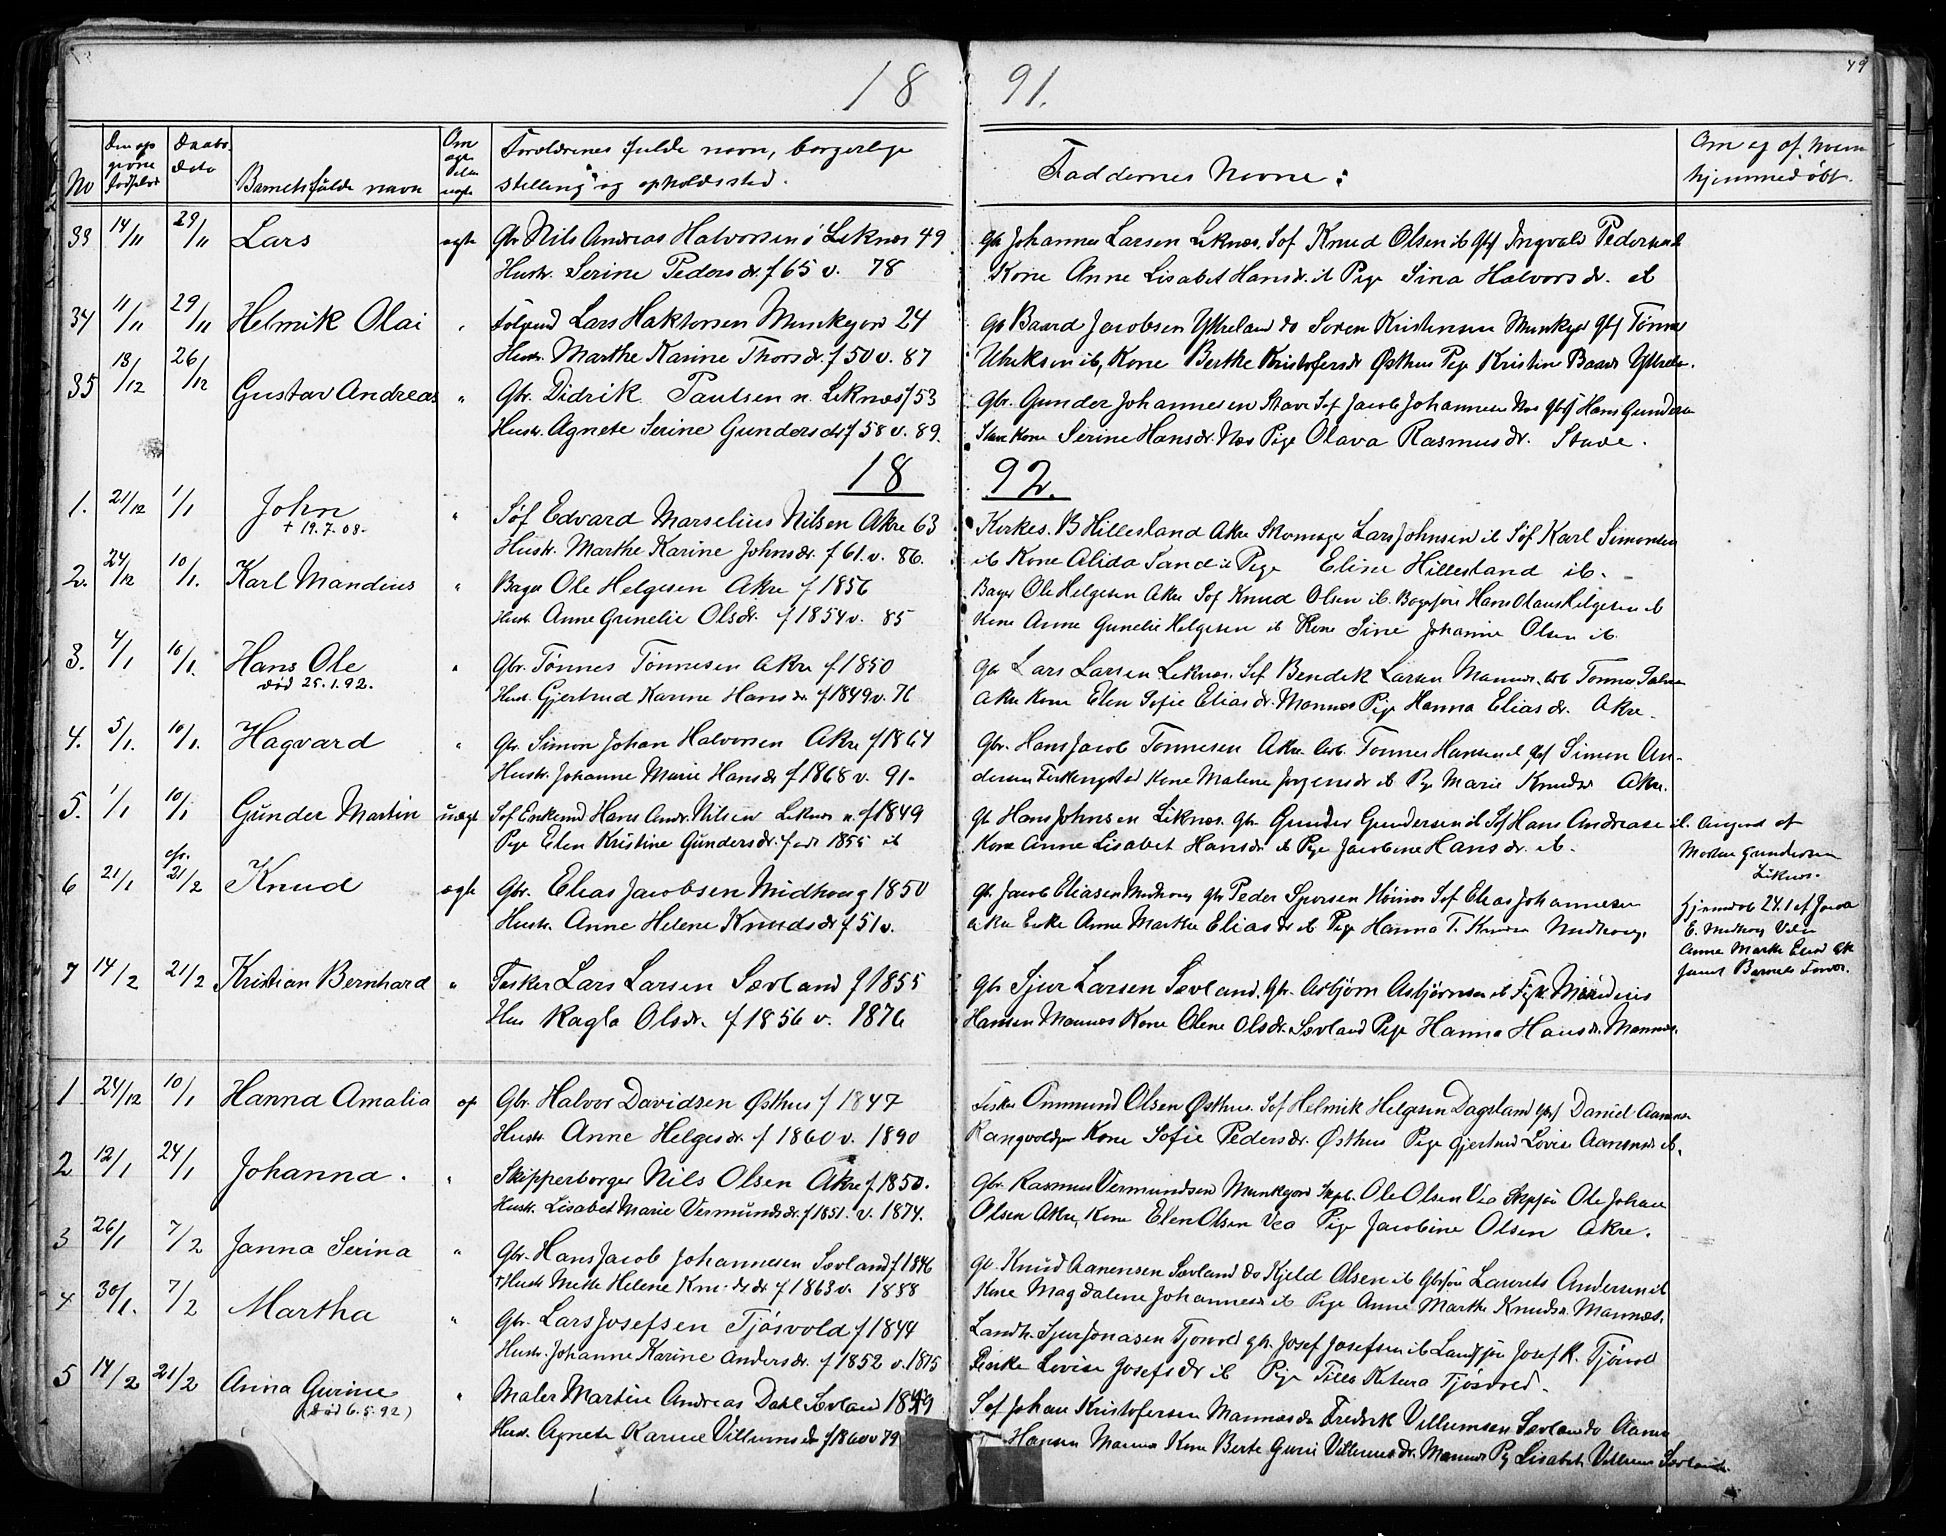 49
18 91.
No Den opgivne fødselsd Daabs dato Barnets fulde navn Om egte eller uegte Forældrenes fulde navn, borgerlige stilling og opholdssted. Faddernes Navne: Om og af hvem hjemmedøbt.
33 14/11 29/11 Lars egte Gbr Nils Andreas Halvorsen Liknes 49 Gbr Johannes Larsen Liknes, Sof Knud Olsen ib Gbs Ingvald Pedersen ib
Hustr. Serine Pedersdr. f 65 v. 78 Kone Anne Lisabet Hansdr. ib Pige Sina Halvorsdr. ib
34 11/11 29/11 Helmik Olai " Lars Haktorsen Munkejord 24 Gb Baard Jacobsen Ytreland do Soren Kristensen Munkejor Gbs Tønnes
Hustr. Marthe Karine Thorsdr. f 50 v. 87 Ulriksen ib, Kone Berthe Kristofersdr Østhus Pige Kristine Baards Ytrela
35 13/12 26/12 Gustav Andreas " Gbr. Didrik Paulsen n. Liknes f 53 Gbr. Gunder Johannesen Stave Sof Jacob Johannesen Nes Gbs Hans Gunders
Hustr. Agnete Serine Gundersdr f 58 v. 89. Stave Kone Serine Hansdr. Nes Pige Olava Rasmusdr. Stave.
18 92.
1. 21/12 1/1 John " Søf Edvard Marselius Nilsen Akre 63 Kirkes. B Hillesland Akre Skomager Lars Johnsen ib Søf Karl Simonsen
+ 19.7.08. Hustr. Marthe Karine Johnsdr. f 61. v. 86. ib Kone Alida Sand ib Pige Eline Hillesland ib.
2. 24/12 10/1. Karl Mandius " Bager Ole Helgesen Akre f 1856 Bager Ole Helgesen Akre Sof Knud Olsen ib. Hans Olaus Helgesen ib
Hustr. Anne Gunelie Olsdr. f 1854 v. 85 Kone Anne Gunelie Helgesen ib Kone Sine Johanne Olsen ib.
3. 4/1 10/1. Hans Ole " Gbr. Tønnes Tønnesen Akre f 1850 Gbr Lars Larsen Liknes. Sof Bendik Larsen Mannes. Arb Tonnes
død 25.1.92. Hustr. Gjertrud Karine Hansdr. f 1849 v. 76 Akre Kone Elen Sofie Eliasdr. Mannes Pige Hanna Eliasdr. Akre.
4. 5/1. 10/1. Hagvard " Gbr. Simon Johan Halvorsen Akre f 1864 Gbr. Hans Jacob Tonnesen Akre Arb. Tonnes Hansen ib Gbs Simon An-
Hustr. Johanne Marie Hansdr f 1868 v. 91. dersen Ferkingstad Kone Malene Jørgensdr ib Pige Marie Knudsdr Akre.
5. 1/1 10/1 Gunder Martin uægt Sof Enkemd Hans Andr. Nilsen Liknes n. f 1849 Gb Hans Johnsen Liknes. Gbr. Gunder Gundersen ib Sof Hans Andreasen ib. Angivet af
Pige Elen Kristine Gundersdr. født 1855 ib Kone Anne Lisabet Hansdr. ib Pige Jacobine Hansdr. ib. Morten Gundersen
Liknes.
6 21/1 21/2 Knud egte Gbr. Elias Jacobsen Midhoug 1850 Gbr. Jacob Eliasen Midhoug Gbr Peder Sjorsen Høines Sof Elias Johannesen Hjemdøb 24.1 af Jacob
Hustr. Anne Helene Knudsdr f 51 v. Akre Enke Anne Marthe Eliasdr ib Pige Hanna T. Midhoug. E. Midhoug
Anne Marthe Eliasdr
samt Barnets Forær.
7 14/2 21/2 Kristian Bernhard " Fisker Lars Larsen Sævland f 1855 Gbr Sjur Larsen Sævland. Gbr. Asbjørn Asbjørnsen ib Fisk. Mandius
Hus Ragla Olsdr. f 1856 v. 1876 Hansen Mannes Kone Olene Olsdr. Sævland Pige Hanna Hansdr. Mannes.
1 24/12 10/1 Hanna Amalia Gbr. Halvor Davidsen Østhus f 1847 Fisker Ommund Olsen Østhus. Sof Helmik Helgesen Dagsland Gbs Daniel Aanens
Hustr. Anne Helgesdr. f 1860 v. 1890 Kone Sofie Pedersdr. Østhus Pige Gjertrud Lovise Aanensdr ib.
2 12/1 24/1 Johanna. " Skipperborger Nils Olsen Akre f. 1850. Gbr. Rasmus Vermundsen Munkejord Skpb. Ole Olsen Vea Ole Johan
Hustr. Lisabet Marie Vermundsdr. f 1851. v. 1874. Olsen Akre, Kone Elen Olsen Vea Pige Jacobine Olsen Akre.
3 26/1 7/2 Janna Serina " Gbr. Hans Jacob Johannesen Sævland f 1846 Gb. Knud Aanensen Sævland do Kjeld Olsen ib Laurits Andersen ib
Hustr Mette Helene Knudsdr f 1863 v. 1888 Kone Magdalene Johannesdr ib Pige Anne Marthe Knudsdr. Mannes.
4 30/1. 7/2 Martha " Gbr. Lars Josefsen Tjøsvold f 1844 Landh. Sjur Jonasen Tjosvold Gbr. Josef Josefsen ib Josef K. Tjosvold
Hustr. Johanne Karine Andersdr. f 1852 v. 1875 Lovise Josefsdr ib Pige Tilla Tjøsvold.
5 14/2 21/2 Anna Gurine " Maler Martin Andreas Dahl Sævland 1849 Sof Johan Kristofersen Mannes do Fredrik Villumsen Sævland do Aanen
(død 6.5.92) Hustr. Agnete Karine Villumsdr f 1860 v 79 Hansen Mannes Kone Berte Gurie Villumsdr. Mannes Pg Lisabet Villums Sævland.